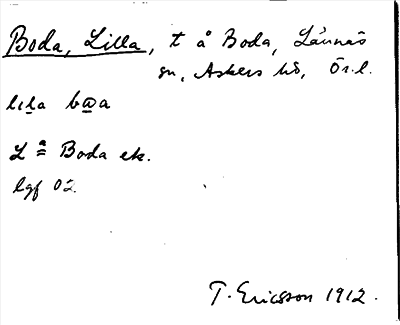 Boda, Lilla, t å Boda, Lännäs
sn, Askers hd, Ör. l.
lila boa
L a = Boda ek.
lgf 02
T. Ericsson 1912.